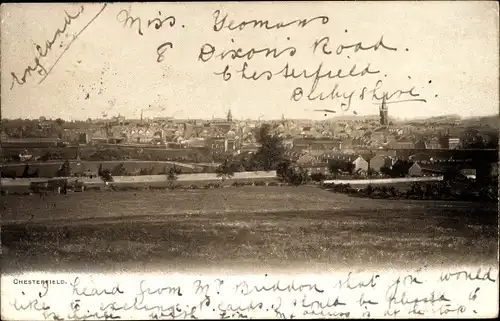 England
Miss. Yeomans
8 Dixons Road.
Chesterfield
Derbyshire.
CHESTERFIELD.
I heard from Mr Briddon that you would
like to exchange cards, I should be please to